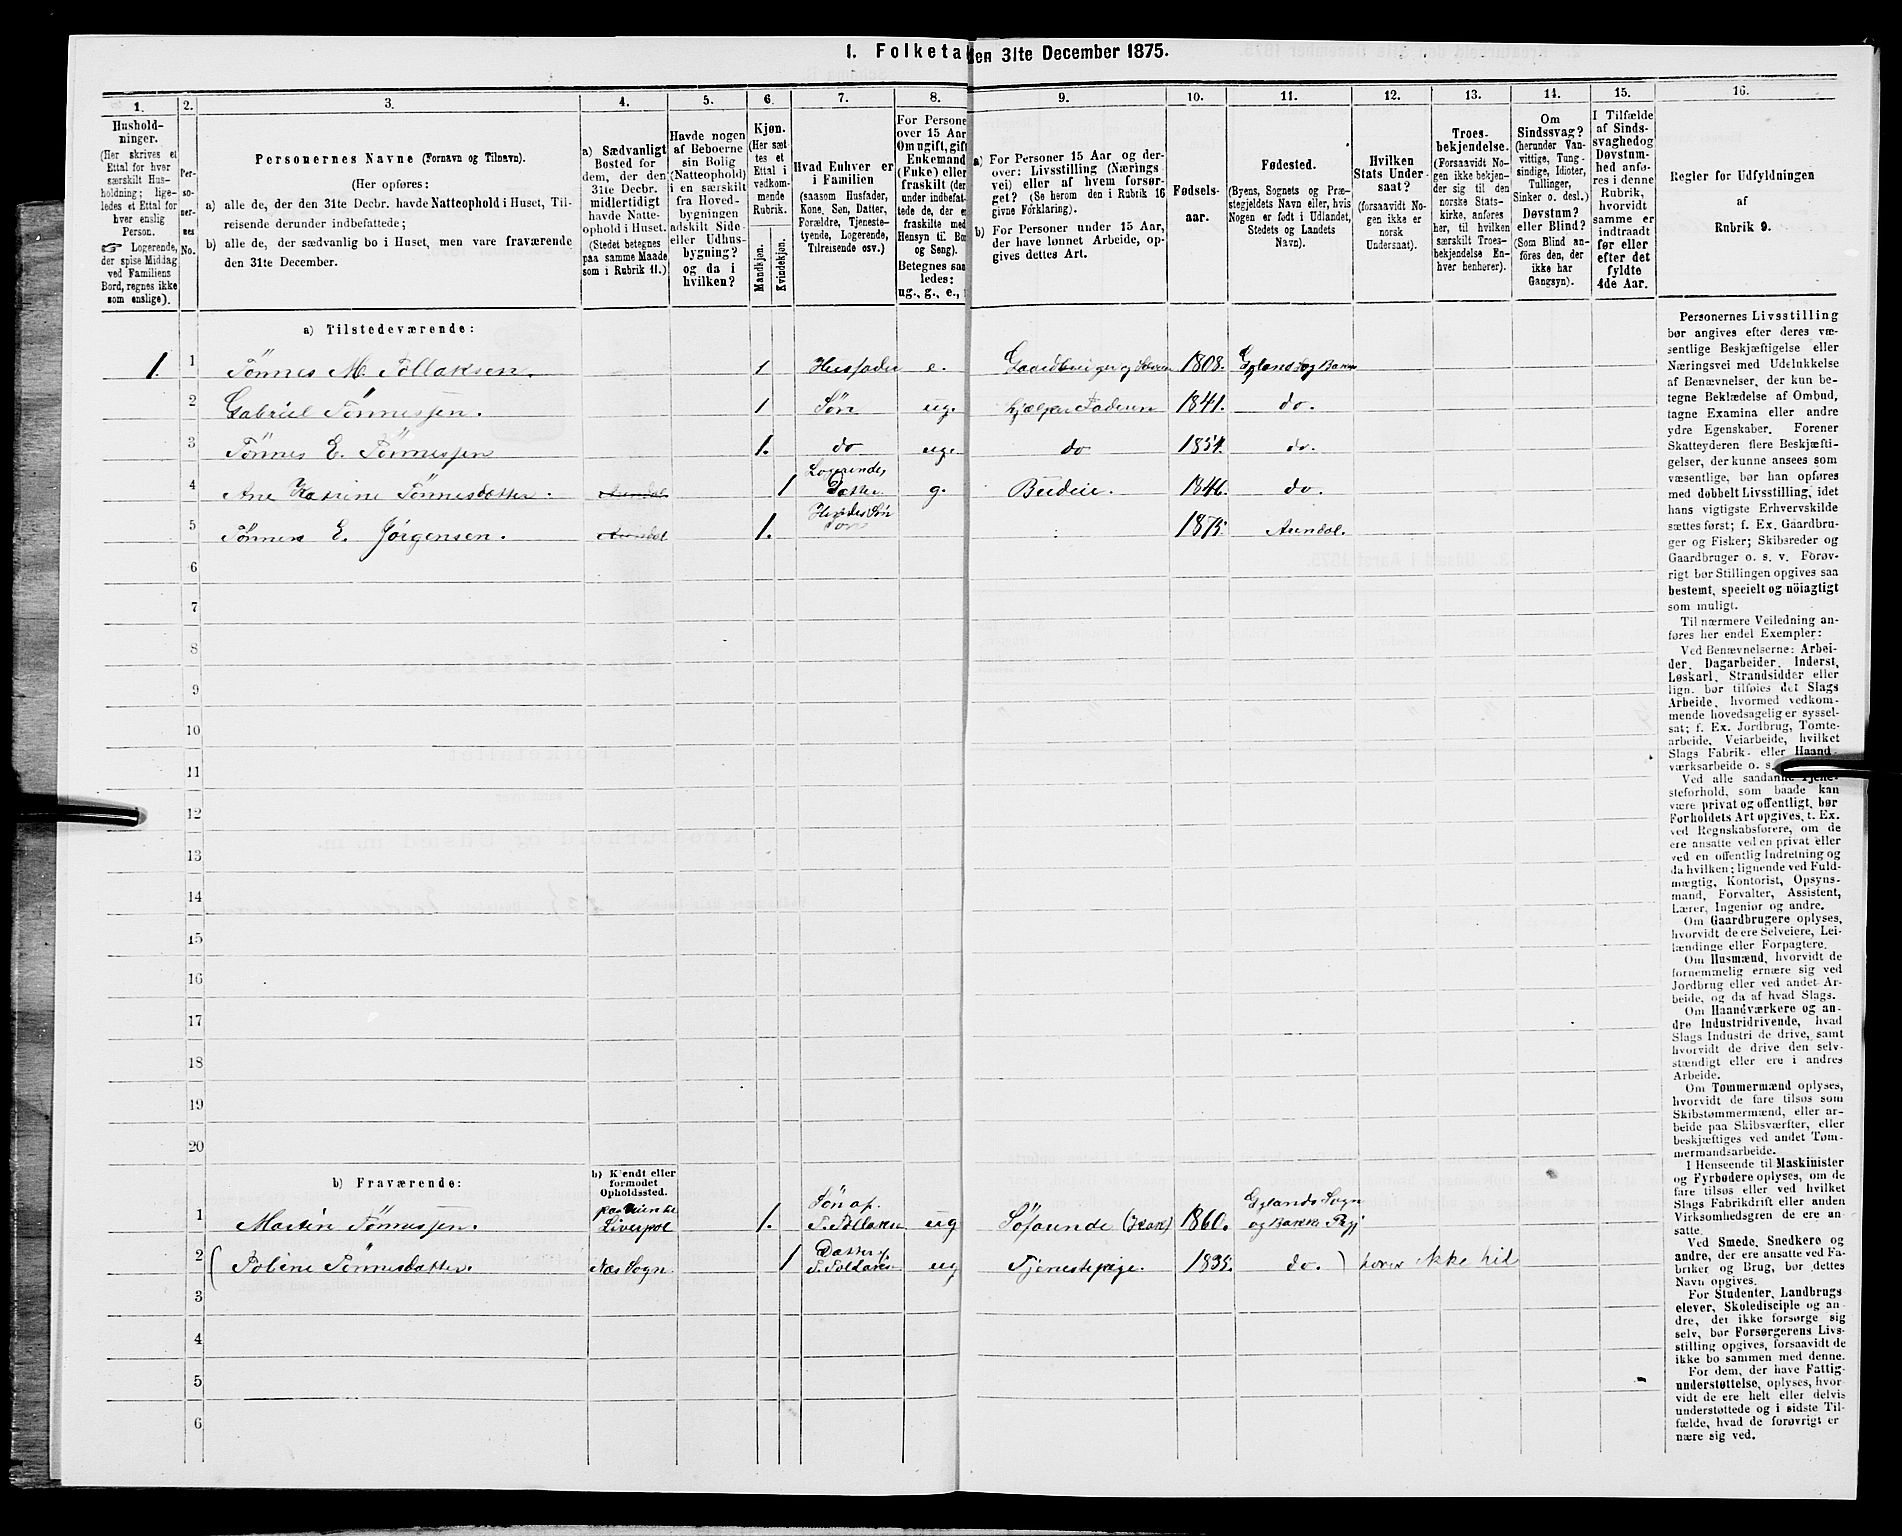 1. Folketa
den 31te December 1875.
1. 2. 3. 4. 5. 6. 7. 8. 9. 10. 11. 12. 13. 14. 15. 16.
Hushold-
ninger.
(Her skrives et
Ettal for hver
særskilt Hus-
holdning; lige-
ledes et Ettal for
hver enslig
Person.
☞ Logerende,
der spise Middag
ved Familiens
Bord, regnes ikke
som enslige).
Per-
so-
ner-
nes
No.
Personernes Navne (Fornavn og Tilnavn).
(Her opføres:
a) alle de, der den 31te Decbr. havde Natteophold i Huset, Til-
reisende derunder indbefattede;
b) alle de, der sædvanlig bo i Huset, men vare fraværende
den 31te December.
a) Sædvanligt
Bosted for
dem, der den
31te Decbr.
midlertidigt
havde Natte-
ophold i Huset.
(Stedet betegnes
paa samme Maade
som i Rubrik 11.)
Havde nogen
af Beboerne
sin Bolig
(Natteophold)
i en særskilt
fra Hoved-
bygningen
adskilt Side-
eller Udhus-
bygning?
og da i
hvilken?
Kjøn.
(Her sæt-
tes et
Ettal i
vedkom-
mende
Rubrik.
Mandkjøn.
Kvindekjøn.
Hvad Enhver er
i Familien
(saasom Husfader,
Kone, Søn, Datter,
Forældre, Tjeneste-
tyende, Logerende,
Tilreisende osv.)
For Persone
over 15 Aar
Om ugift, gift
Enkemand
(Enke) eller
fraskilt (der
under indbefat-
tede de, der er
fraskilte med
Hensyn til Bo
og Seng).
Betegnes saa
ledes:
ug., g., e.,
a) For Personer 15 Aar og der-
over: Livsstilling (Nærings
vei) eller af hvem forsør-
get? (Se herom den i Rubrik 16
givne Forklaring).
b) For Personer under 15 Aar,
der have lønnet Arbeide, op-
gives dettes Art.
Fødsels-
aar.
Fødested.
(Byens, Sognets og Præ-
stegjeldets Navn eller, hvis
Nogen er født i Udlandet,
Stedets og Landets
Navn).
Hvilken
Stats Under-
saat?
(forsaavidt No-
gen ikke er
norsk
Undersaat).
Troes-
bekjendelse.
(Forsaavidt No-
gen ikke bekjen-
der sig til den
norske Stats-
kirke, anføres
her, til hvilken
særskilt Troes-
bekjendelse En-
hver henhører).
Om
Sindssvag?
(herunder Van-
vittige, Tung-
sindige, Idioter,
Tullinger,
Sinker o. desl.)
Døvstum?
eller Blind?
(Som Blind an-
føres den, der
ikke har
Gangsyn).
I Tilfælde
af Sinds-
svaghed og
Døvstum-
hed anfø-
res i denne
Rubrik,
hvorvidt
samme er
indtraadt
før eller
efter det
fyldte
4de Aar.
Regler for Udfyldningen
af
Rubrik 9.
a) Tilstedeværende:
1. 1 Tønnes M. Tollaksen. 1 Husfader e. Gaardbruger og Selveier 1808. Gyland Sog Bakke
2 Gabriel Tønnessen. 1 Søn ug. hjælper Faderen 1841. do.
3 Tønnes E. Tønnessen 1. do ug. do 1854. do.
4 Ane Katrine Tønnesdatter. Arendal 1 Logerende, Datter g. Budeie. 1846. do.
5 Tønnes E. Jørgensen. Arendal 1. Hendes Søn 1875. Arendal.
6
7
8
9
10
11
12
13
14
15
16
17
18
19
20
b) Fraværende:
b) Kjendt eller
formodet
Opholdssted.
1 Martin Tønnessen. Liverpol 1. Søn af T. Tollaksen ug Søfarende 1860. Gylands Sogn og Bakke Pgj
2 (Toline Tønnesdatter. Næs Sogn 1 Datter af T. Tollaksen ug Tjenestepige. 1835. do. ) hører ikke hid
3
4
5
6
Personernes Livsstilling
bør angives efter deres væ-
sentlige Beskjæftigelse eller
Næringsvei med Udelukkelse
af Benævnelser, der kun be-
tegne Beklædelse af Ombud,
tagne Examina eller andre
ydre Egenskaber. Forener
Skatteyderen flere Beskjæfti-
gelser, der kunne ansees som
væsentlige, bør han opføres
med dobbelt Livsstilling, idet
hans vigtigste Erhvervskilde
sættes først; f. Ex. Gaardbru-
ger og Fisker; Skibsreder og
Gaardbruger o. s. v. Forøv-
rigt bør Stillingen opgives saa
bestemt, specielt og nöiagtigt
som muligt.
Til nærmere Veiledning an-
føres her endel Exempler:
Ved Benævnelserne: Arbei-
der, Dagarbeider, Inderst,
Løskarl, Strandsidder eller
lign. bør tilføies det Slags
Arbeide, hvormed vedkom-
mende hovedsagelig er syssel-
sat; f. Ex. Jordbrug, Tomte-
arbeide, Veiarbeide, hvilket
Slags Fabrik- eller Haand-
værksarbeide o. s.
Ved alle saadanne Tjene-
steforhold, som baade kan
være privat og offentligt, bør
Forholdets Art opgives, t. Ex.
ved Regnskabsførere, om de
ere ansatte ved en privat eller
ved en offentlig Indretning og
da hvilken; lignende ved Fuld-
mægtig, Kontorist, Opsyns-
mand, Forvalter, Assistent,
Lærer, Ingeniør og andre.
Om Gaardbrugere oplyses,
hvorvidt de ere Selveiere, Lei-
lændinge eller Forpagtere.
Om Husmænd, hvorvidt de
fornemmelig ernære sig ved
Jordbrug eller ved andet Ar-
beide, og da af hvad Slags.
Om Haandværkere og an-
dre Industridrivende, hvad
Slags Industri de drive, samt
hvorvidt de drive den selv-
stændigt eller ere i andres
Arbeide.
Om Tømmermænd oplyses,
hvorvidt de fare tilsøs som
Skibstømmermænd, eller ar-
beide paa Skibsværfter, eller
beskjæftiges ved andet Tøm-
mermandsarbeide.
I Henseende til Maskinister
og Fyrbødere oplyses, om de
fare tilsøs eller ved hvilket
Slags Fabrikdrift eller anden
Virksomhedsgren de ere an-
satte.
Ved Smede, Snedkere og
andre, der ere ansatte ved Fa-
briker og Brug, bør dettes
Navn opgives.
For Studenter, Landbrugs
elever, Skoledisciple og an-
dre, der ikke forsørge sig
selv, bør Forsørgerens Livs-
stilling opgives, forsaavidt de
ikke bo sammen med denne.
For dem, der have Fattig-
understøttelse, oplyses, hvor-
vidt de ere helt eller delvis
understøttede og i sidste Til-
fælde, hvad de forøvrigt er
nære sig ved.